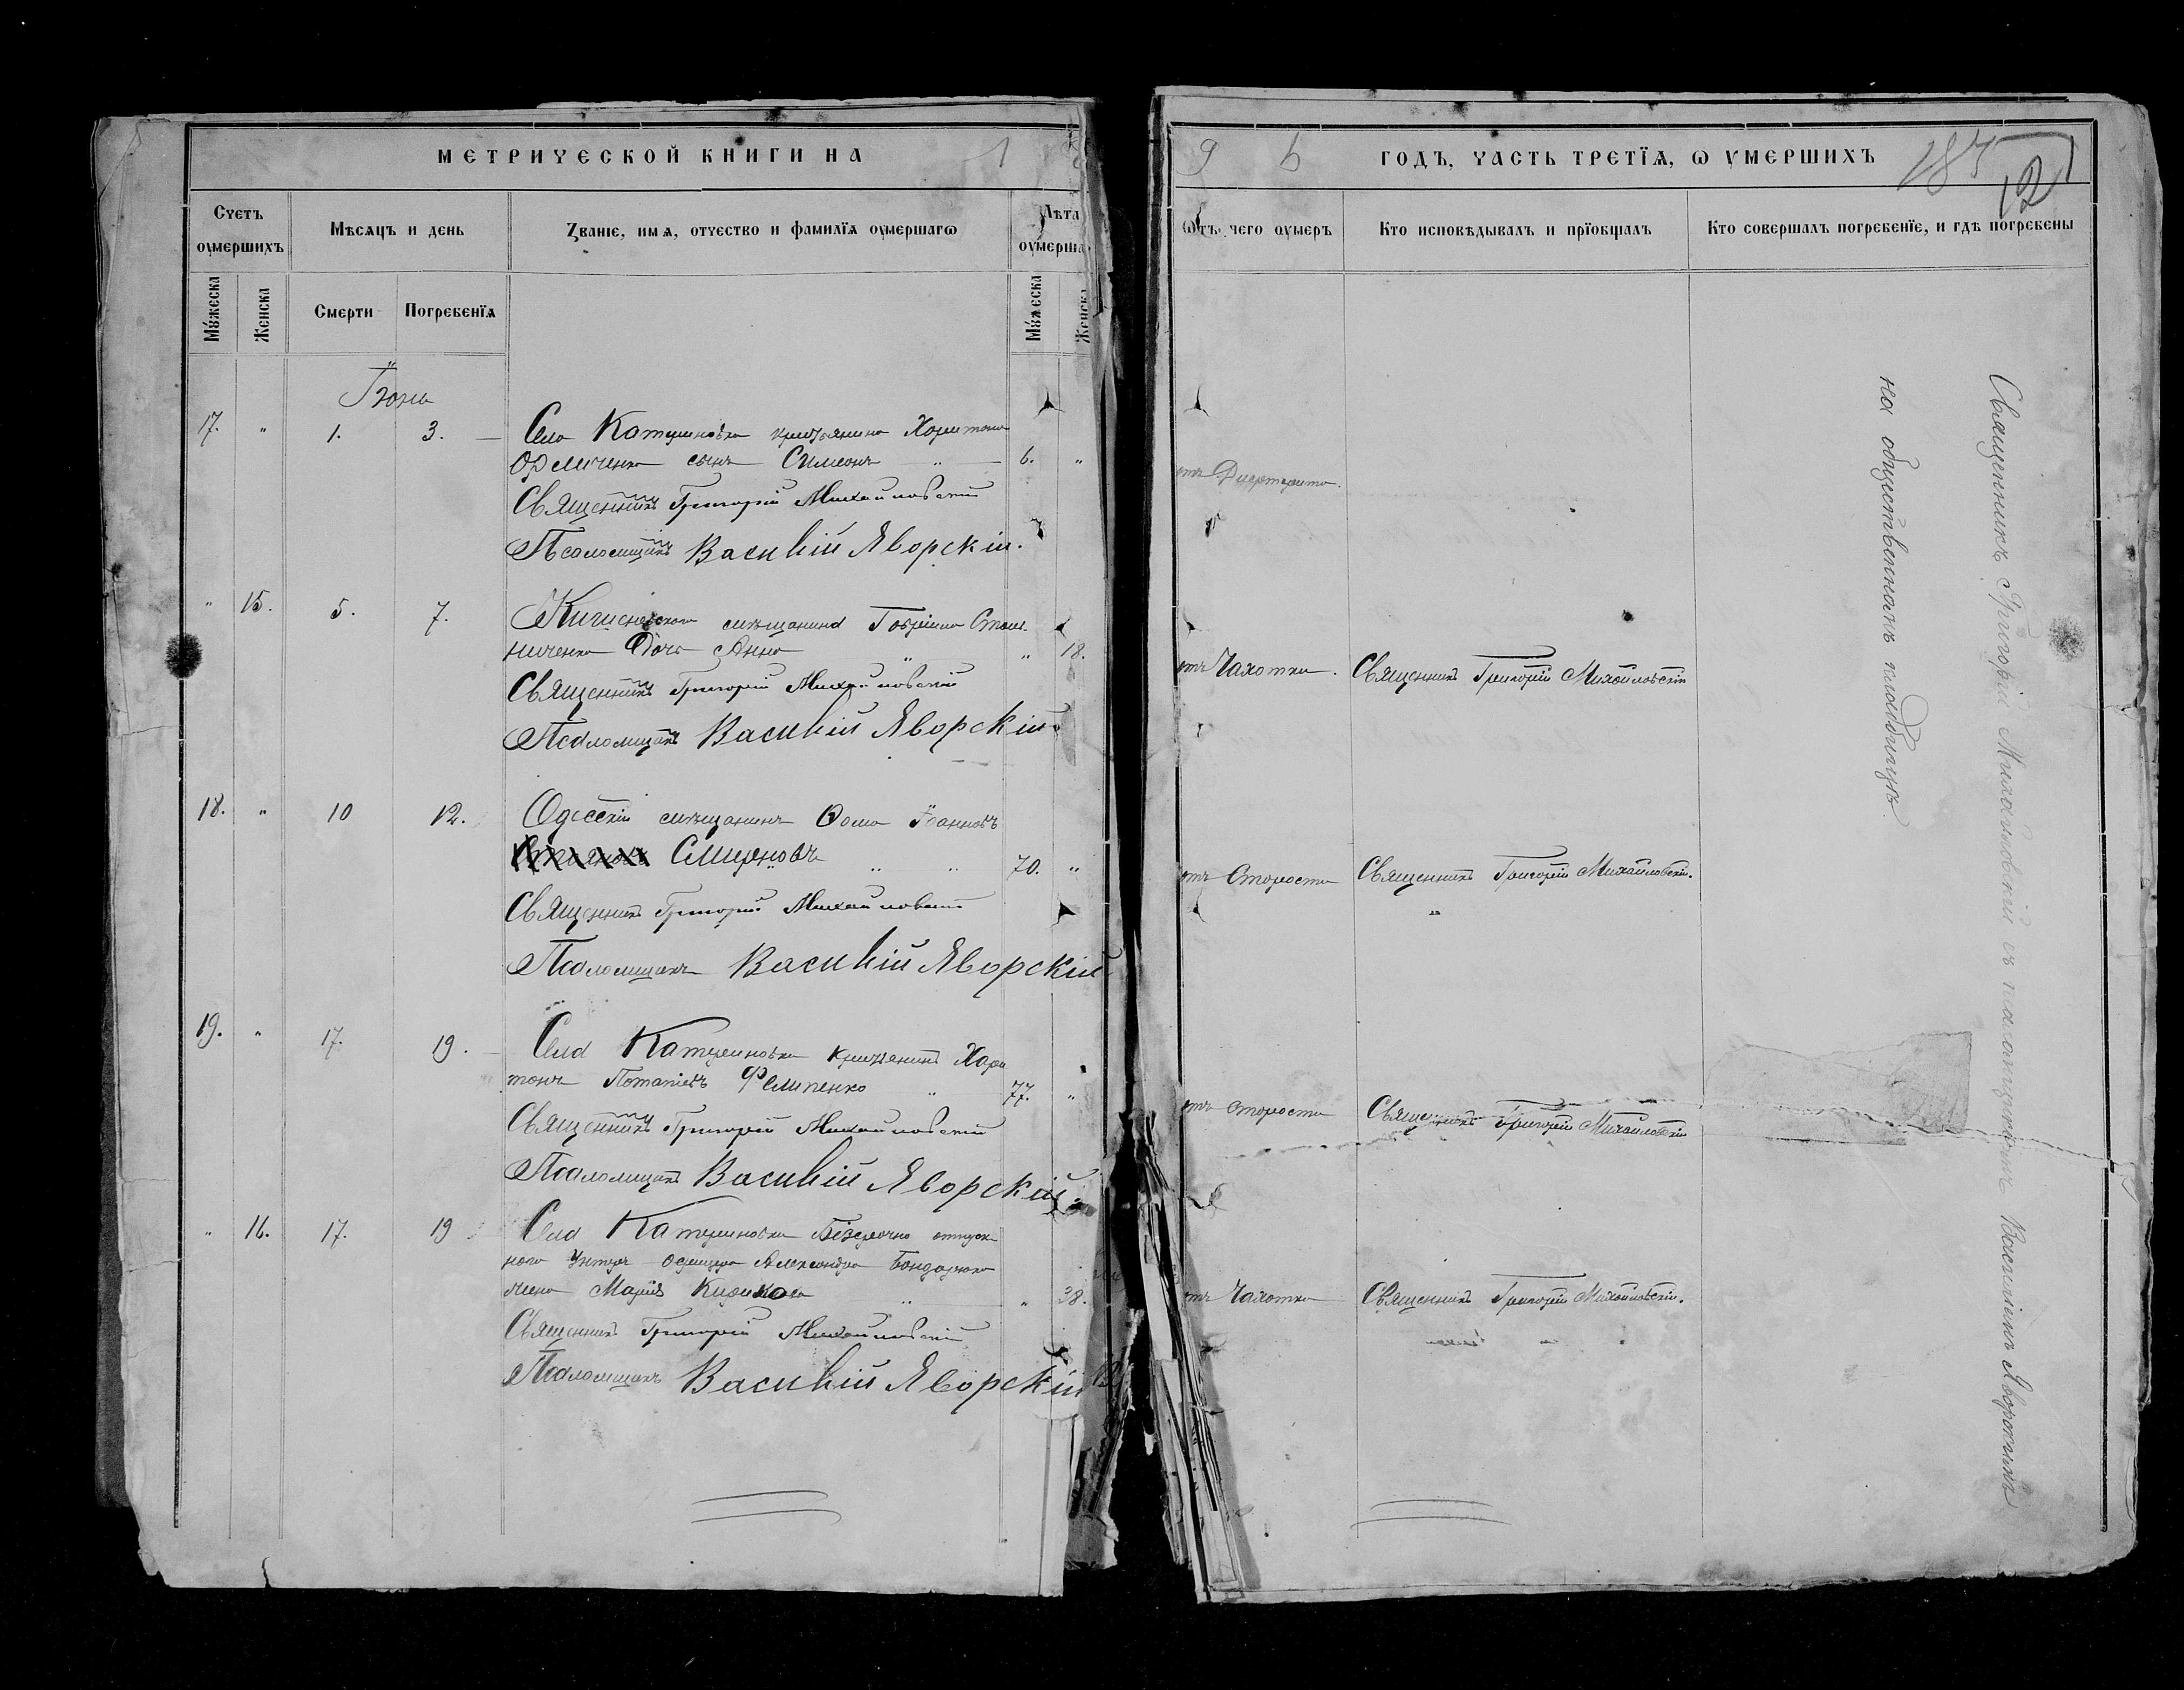 МЕТРИЧЕСКОЙ КНИГИ НА 1 8
9 6 ГОДЪ, ЧАСТЬ ТРЕТЇѦ, Ѡ ѸМЕРШИХЪ
187
12
Счетъ оумершихъ
Мѣсѧцъ и день
Званїе, имѧ, отчество и фамилїѧ оумершагѡ
Лѣта оумерша
Ѿтъ чего оумеръ
Кто исповѣдывалъ и прїобщалъ
Кто совершалъ погребенїе, и гдѣ погребены
Мꙋжеска
Женска
Смерти
Погребенїѧ
Мꙋжеска
Женска
Іюнь
17. " 1. 3. Села Катериновки крестьянина Харитона
сынъ Симеонъ " 6. "
отъ Дифтерита.
Священникъ Григорій Михайловскій
Псаломщикъ Василій Яворскій.
" 15. 5. 7. Кишеневскаго мѣщанина
ниченка дочь Анна " " 18.
отъ Чахотки. Священникъ Григорій Михайловскій
Священникъ Григорій Михайловскій
Псаломщикъ Василій Яворскій.
18. " 10 12. Одесскій мѣщанинъ Ѳома Іоанновъ
Смирновъ " " 70. "
отъ Старости Священникъ Григорій Михайловскій.
Священникъ Григорій Михайловскій
Псаломщикъ Василій Яворскій
19. " 17. 19. Села Катериновки крестьянинъ Хари
тонъ Потапіевъ Филипенко " 77. "
отъ старости Священникъ Григорій Михайловскій
Священникъ Григорій Михайловскій
Псаломщикъ Василій Яворскій
" 16. 17. 19 Села Катериновки безсрочно отпуск
ного Унтеръ Офицера Александра Бондаренка
жена Марія " " 38.
отъ Чахотки Священникъ Григорій Михайловскій.
Священникъ Григорій Михайловскій
Псаломщикъ Василій Яворскій
Священникъ Григорій Михайловскій съ псаломщикомъ Василіемъ Яворскимъ
на общественномъ кладбищѣ